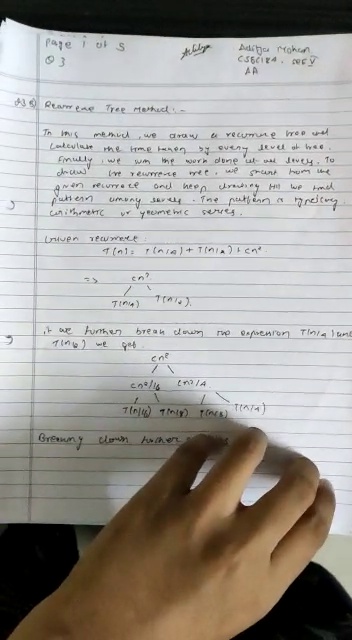 Page 1 of 5
Q 3
Aditya Mohan
CSE(18A, SEC V
AA
Q3 Recurrence Tree Method: -
In this method, we draw a recurrence tree and
calculate the time taken by every level of tree.
Finally, we sum the work done at all levels. To
draw the recurrence tree, we start from the
given recurrence and keep drawing till we find
pattern among levels. The pattern is typically
arithmetric or geometric series.
Given recurrence
T(n) = T(n/4) + T(n/2) + cn²
=> cn²
/ \
T(n/4) T(n/2)
If we further break down the expression T(n/4) and
T(n/2) we get
cn²
/ \
cn²/16 cn²/4
/ \ / \
T(n/16) T(n/8) T(n/8) T(n/4)
Breaking down further